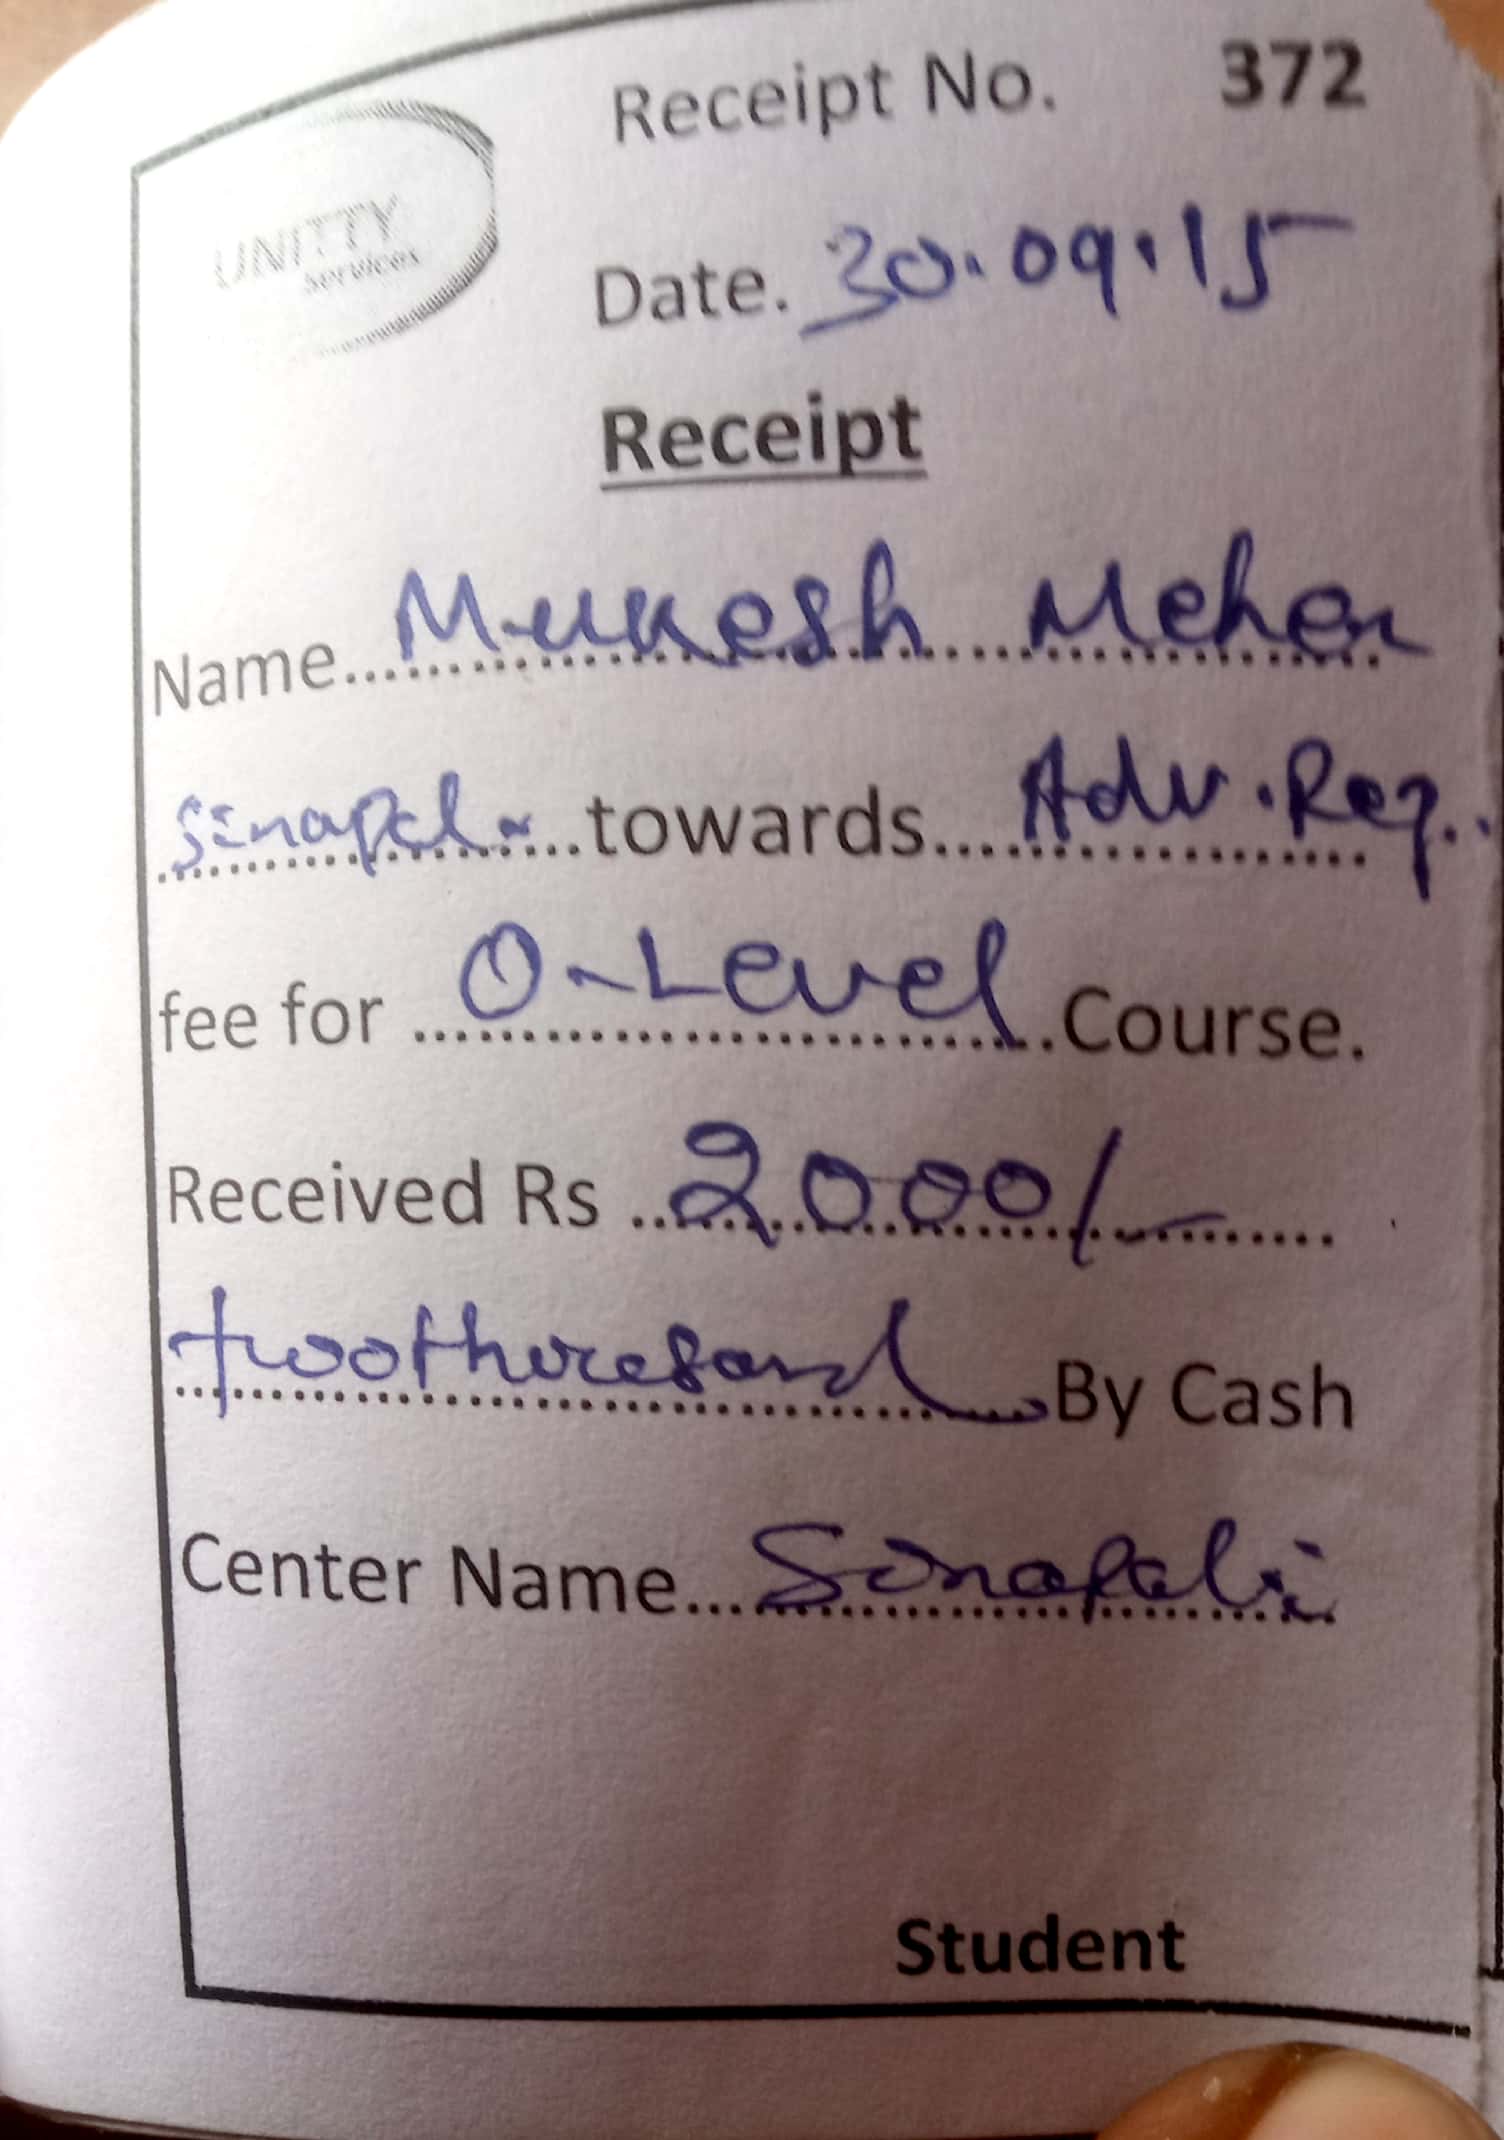 Receipt No. 372
UNITTY
Services
Date. 30.09.15
Receipt
Name...Mukesh Meher
Sinapala...towards...Adv. Reg..
fee for ...O-Level...Course.
Received Rs ...2000/-...
twothousand...By Cash
Center Name...Sinapali
Student